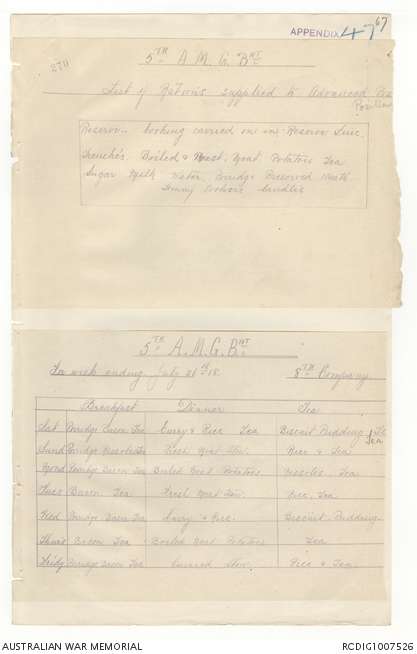 APPENDIX 47 67
270
5TH A. M. G. BNT
List of Rations supplied to Advanced
Reserve. Cooking carried on in Reserve Line
Trenches Boiled & Roast Meat Potatoes Tea
Sugar Milk Water Porridge Preserved Meat
Tommy Cookers Candles
5TH A. M. G. BNT
For week ending July 26th 18. 8TH Company
Breakfast Dinner Tea
Sat Porridge Bacon Tea Curry & Rice Tea Biscuit Pudding
Tea
Sund Porridge Tea Fresh Meat Stew. Rice & Tea
Mond Porridge Bacon Tea Boiled Meat Potatoes Tea
Tues Bacon Tea Fresh Meat Stew. Rice, Tea
Wed Porridge Bacon Tea Curry & Rice. Biscuit Pudding
Thurs Bacon Tea Boiled Meat Potatoes Tea
Fridy Porridge Bacon Tea Stew Rice & Tea
AUSTRALIAN WAR MEMORIAL RCDIG1007526